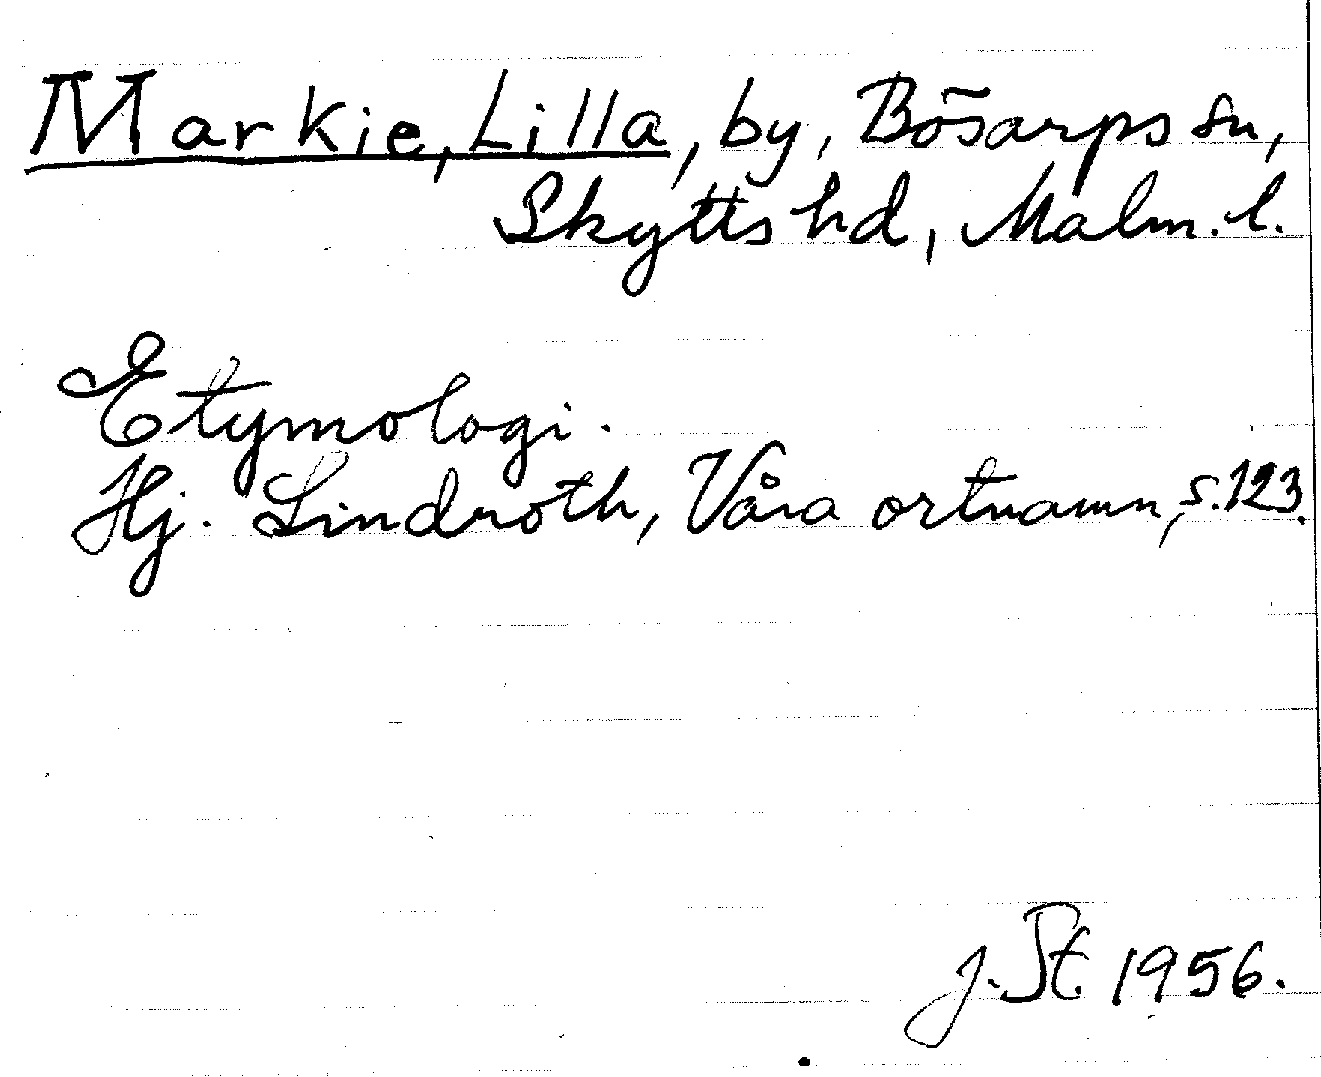 Markie, Lilla, by, Bösarps sn,
Skytts hd, Malm. l.
Etymologi.
Hj. Lindroth, Våra ortnamn, s. 123.
J. St. 1956.